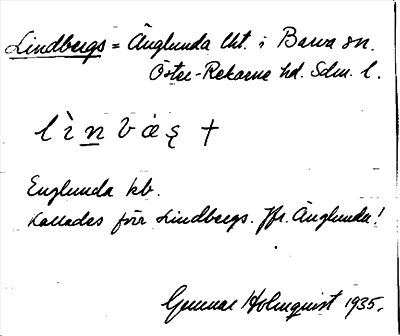 Lindbergs = Änglunda lht. i Barva sn.
Öster-Rekarne hd. Sdm. l.
lìnbæs †
Englunda kb.
Kallades förr Lindbergs. Jfr. Änglunda!
Gunnar Holmquist 1935.